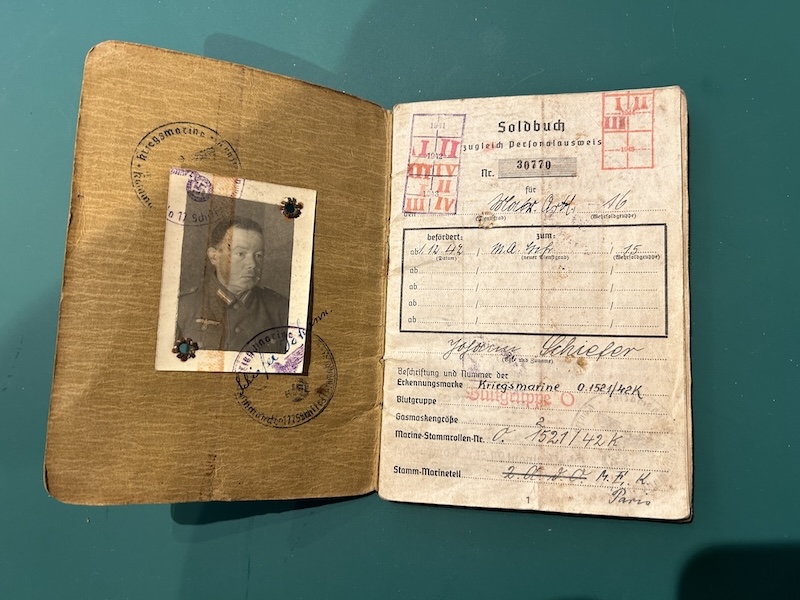 Kriegsmarine
Soldbuch
zugleich Personalausweis
Nr. 30770
für
Matr. Art. 16
(Dienstgrad) (Wehrsoldgruppe)
1941
1942
I II
III IV
II
III IV
I II
III
befördert: zum:
ab 1.12.42 M.A. Gefr. 15
(Datum) (neuer Dienstgrad) (Wehrsoldgruppe)
ab
ab
ab
ab
Johann Schiefer
(Vor- und Zuname)
Beschriftung und Nummer der
Erkennungsmarke Kriegsmarine O.1521/42K
Blutgruppe Blutgruppe O
Gasmaskengröße 2
Marine-Stammrollen-Nr. O. 1521/42K
Stamm-Marineteil 2. A. d. O. M. F. K.
Paris
1